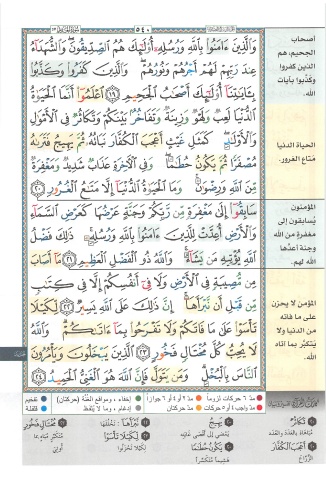 ٥٤٠
وَالَّذِينَ ءَامَنُوا بِاللَّهِ وَرُسُلِهِ أُولَٰئِكَ هُمُ الصِّدِّيقُونَ وَالشُّهَدَاءُ
عِندَ رَبِّهِمْ لَهُمْ أَجْرُهُمْ وَنُورُهُمْ وَالَّذِينَ كَفَرُوا وَكَذَّبُوا
بِـَٔايَٰتِنَا أُولَٰئِكَ أَصْحَٰبُ الْجَحِيمِ ١٩ اعْلَمُوا أَنَّمَا الْحَيَوٰةُ
الدُّنْيَا لَعِبٌ وَلَهْوٌ وَزِينَةٌ وَتَفَاخُرٌ بَيْنَكُمْ وَتَكَاثُرٌ فِي الْأَمْوَٰلِ
وَالْأَوْلَٰدِ كَمَثَلِ غَيْثٍ أَعْجَبَ الْكُفَّارَ نَبَاتُهُ ثُمَّ يَهِيجُ فَتَرَىٰهُ
مُصْفَرًّا ثُمَّ يَكُونُ حُطَٰمًا وَفِي الْـَٔاخِرَةِ عَذَابٌ شَدِيدٌ وَمَغْفِرَةٌ
مِّنَ اللَّهِ وَرِضْوَٰنٌ وَمَا الْحَيَوٰةُ الدُّنْيَا إِلَّا مَتَٰعُ الْغُرُورِ ٢٠
سَابِقُوا إِلَىٰ مَغْفِرَةٍ مِّن رَّبِّكُمْ وَجَنَّةٍ عَرْضُهَا كَعَرْضِ السَّمَاءِ
وَالْأَرْضِ أُعِدَّتْ لِلَّذِينَ ءَامَنُوا بِاللَّهِ وَرُسُلِهِ ذَٰلِكَ فَضْلُ
اللَّهِ يُؤْتِيهِ مَن يَشَاءُ وَاللَّهُ ذُو الْفَضْلِ الْعَظِيمِ ٢١ مَا أَصَابَ
مِن مُّصِيبَةٍ فِي الْأَرْضِ وَلَا فِي أَنفُسِكُمْ إِلَّا فِي كِتَٰبٍ
مِّن قَبْلِ أَن نَّبْرَأَهَا إِنَّ ذَٰلِكَ عَلَى اللَّهِ يَسِيرٌ ٢٢ لِّكَيْلَا
تَأْسَوْا عَلَىٰ مَا فَاتَكُمْ وَلَا تَفْرَحُوا بِمَا ءَاتَىٰكُمْ وَاللَّهُ
لَا يُحِبُّ كُلَّ مُخْتَالٍ فَخُورٍ ٢٣ الَّذِينَ يَبْخَلُونَ وَيَأْمُرُونَ
النَّاسَ بِالْبُخْلِ وَمَن يَتَوَلَّ فَإِنَّ اللَّهَ هُوَ الْغَنِيُّ الْحَمِيدُ ٢٤
أصحاب
الجحيم، هم
الذين كفروا
وكذّبوا بآيات
الله
الحياة الدنيا
متاع الغرور.
المؤمنون
يُسابقون إلى
مغفرة من الله
وجنة أعدّها
الله لهم.
المؤمن لا يحزن
على ما فاته
من الدنيا ولا
يتكبّر بما آتاه
الله
مدّ ٦ حركات لزوماً
مدّ ٢ أو ٤ أو ٦ جوازاً
إخفاء، ومواقع الغُنَّة (حركتان)
تفخيم
مدّ حركتان
إدغام، وما لا يُلفَظ
قلقلة
تَكَاثُرٌ
يَهِيجُ
نَبْرَأَهَا
مُخْتَالٍ فَخُورٍ
أَعْجَبَ الْكُفَّارَ
الزُّرَّاع
يَكُونُ حُطَامًا
لِكَيْلَا تَأْسَوْا